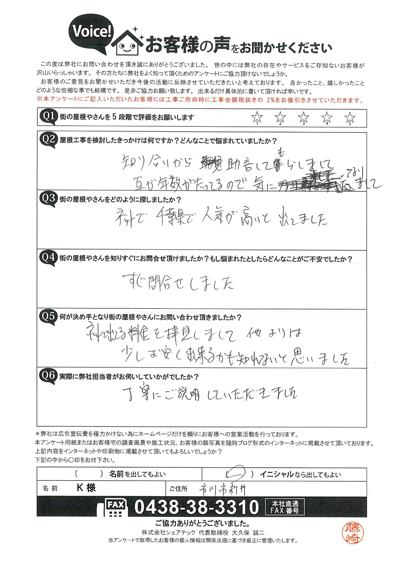 Voice!
お客様の声をお聞かせください
この度は弊社にお問い合わせを頂き誠にありがとうございました。世の中には弊社の存在やサービスをご存知ないお客様が
沢山いらっしゃいます。その方たちに弊社をよく知って頂くためのアンケートにご協力頂けないでしょうか。
お客様のご意見をお聞かせいただき今後の活動に反映させていただきたいと考えております。良かったこと、嬉しかったこと
どのような些細な事でも結構です。是非ご協力お願い致します。出来るだけ具体的に書いて頂ければ幸いです。
※本アンケートにご記入いただいたお客様には工事ご用命時に工事金額税抜きの2%をお値引きさせていただきます。
Q1 街の屋根やさんを5段階で評価をお願いします ☆ ☆ ☆ ☆ ☆
Q2 屋根工事を検討したきっかけは何ですか?どんなことで悩まれていましたか?
知り合いから 助言してもらしまして
瓦が年数がたってるので気に なり まして
Q3 街の屋根やさんをどのように探しましたか?
ネットで千葉県で人気が高いと出てました
Q4 街の屋根やさんを知りすぐにお問合せ頂けましたか?もし悩まれたとしたらどんなことがご不安でしたか?
すぐ問合せしました
Q5 何が決め手となり街の屋根やさんにお問い合わせ頂きましたか?
料金を拝見しまして 他よりは
少しは安く出来るかも知れないと思いました
Q6 実際に弊社担当者がお伺いしていかがでしたか?
丁寧にご説明していただきました
※弊社は広告宣伝費を極力かけない為にホームページだけを頼りにお客様への営業活動を行っております。
本アンケート用紙またはお客様宅の調査風景や施工状況、お客様の顔写真を随時ブログ形式のインターネットに掲載させて頂いております。
上記内容をインターネットや印刷物に掲載させて頂いてもよろしいでしょうか?
下記の中から〇印をお付下さい。
( ) 名前を出してもよい (〇) イニシャルなら出してもよい
名前 K 様 ご住所 市川市新井
FAX 0438-38-3310 本社直通 FAX番号
ご協力ありがとうございました。
株式会社シェアテック 代表取締役 大久保 誠二
当アンケートで取得したお客様の個人情報は関係法規に基づき厳正に管理いたします。